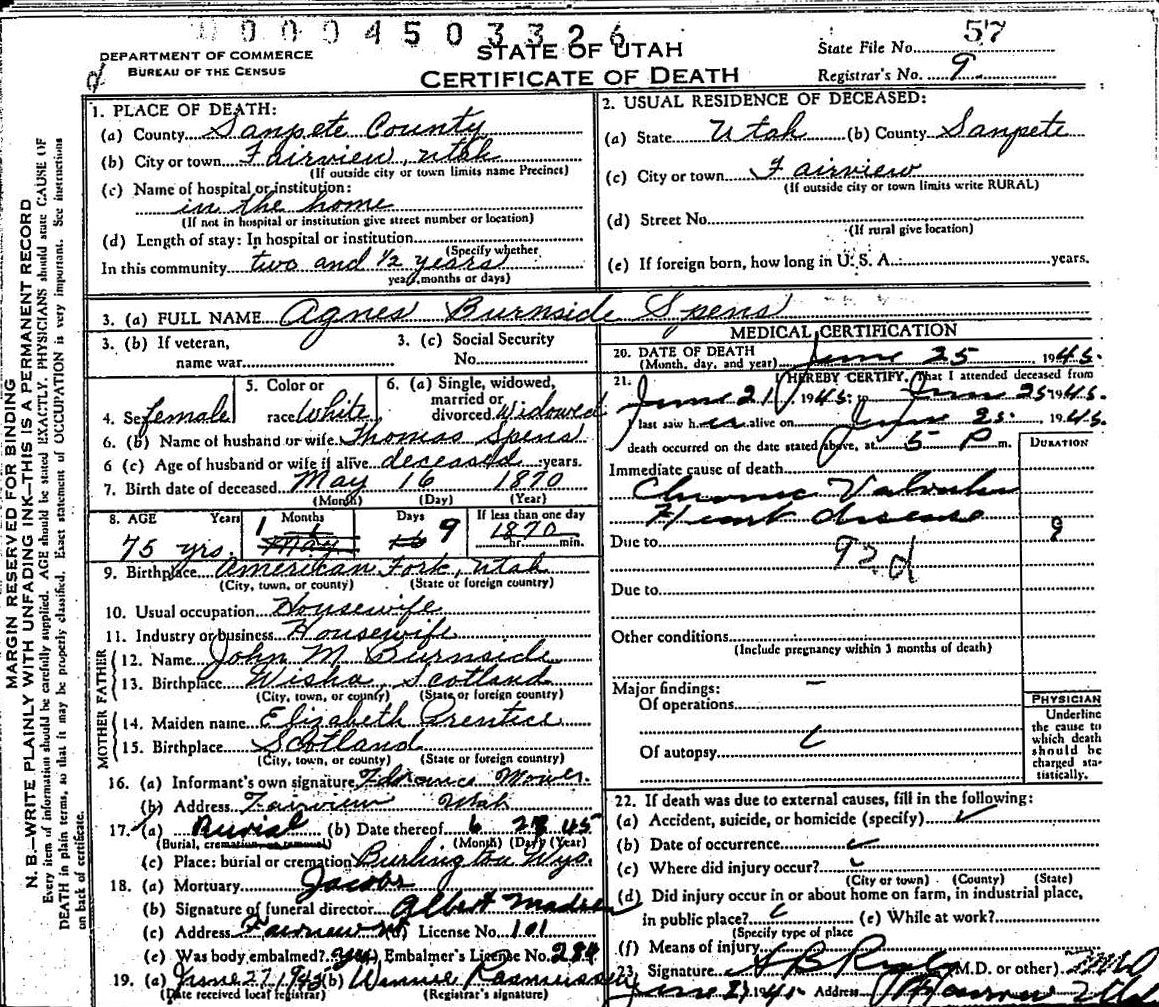 00004503326
57
DEPARTMENT OF COMMERCE
BUREAU OF THE CENSUS
STATE OF UTAH
CERTIFICATE OF DEATH
State File No.
Registrar's No. 9
MARGIN RESERVED FOR BINDING
N. B.—WRITE PLAINLY WITH UNFADING INK—THIS IS A PERMANENT RECORD
Every item of information should be carefully supplied. AGE should be stated EXACTLY. PHYSICIANS should state CAUSE OF
DEATH in plain terms, so that it may be properly classified. Exact statement of OCCUPATION is very important. See instructions
on back of certificate.
1. PLACE OF DEATH:
(a) County Sanpete County
(b) City or town Fairview, Utah
(If outside city or town limits name Precinct)
(c) Name of hospital or institution:
in the home
(If not in hospital or institution give street number or location)
(d) Length of stay: In hospital or institution
(Specify whether
In this community two and 1/2 years
years, months or days)
2. USUAL RESIDENCE OF DECEASED:
(a) State Utah (b) County Sanpete
(c) City or town Fairview
(If outside city or town limits write RURAL)
(d) Street No.
(If rural give location)
(e) If foreign born, how long in U. S. A.: years.
3. (a) FULL NAME Agnes Burnside Spens
3. (b) If veteran,
name war
3. (c) Social Security
No.
4. Sex female
5. Color or
race White
6. (a) Single, widowed,
married or
divorced Widowed
6. (b) Name of husband or wife Thomas Spens
6 (c) Age of husband or wife if alive deceased years.
7. Birth date of deceased May 16 1870
(Month) (Day) (Year)
8. AGE Years Months Days If less than one day
75 yrs. 1 May 16 9 1870
hr. min.
9. Birthplace American Fork, Utah
(City, town, or county) (State or foreign country)
10. Usual occupation Housewife
11. Industry or business Housewife
FATHER
12. Name John M Burnside
13. Birthplace Wisha Scotland
(City, town, or county) (State or foreign country)
MOTHER
14. Maiden name Elizabeth Prentice
15. Birthplace Scotland
(City, town, or county) (State or foreign country)
16. (a) Informant's own signature Mower
(b) Address Fairview Utah
17. (a) Burial (b) Date thereof 6 28 45
(Burial, cremation, or removal) (Month) (Day) (Year)
(c) Place: burial or cremation Burlington Wyo.
18. (a) Mortuary Jacobs
(b) Signature of funeral director Albert Madsen
(c) Address Fairview (d) License No. 101
(e) Was body embalmed? yes Embalmer's License No. 284
19. (a) June 27 1945 (b) Winnie Rasmussen
(Date received local registrar) (Registrar's signature)
MEDICAL CERTIFICATION
20. DATE OF DEATH
(Month, day, and year) June 25 1945.
21. I HEREBY CERTIFY, That I attended deceased from
June 21 1945 to June 25 1945.
I last saw her alive on June 25 1945.
death occurred on the date stated above, at 5 P m.
DURATION
Immediate cause of death
Chronic Valvular
Heart disease
Due to
92d
Due to
Other conditions
(Include pregnancy within 3 months of death)
Major findings:
Of operations
Of autopsy
PHYSICIAN
Underline
the cause to
which death
should be
charged sta-
tistically.
22. If death was due to external causes, fill in the following:
(a) Accident, suicide, or homicide (specify)
(b) Date of occurrence
(c) Where did injury occur?
(City or town) (County) (State)
(d) Did injury occur in or about home on farm, in industrial place,
in public place? (e) While at work?
(Specify type of place
(f) Means of injury
23. Signature (M.D. or other) MD
June 27 1945 Address